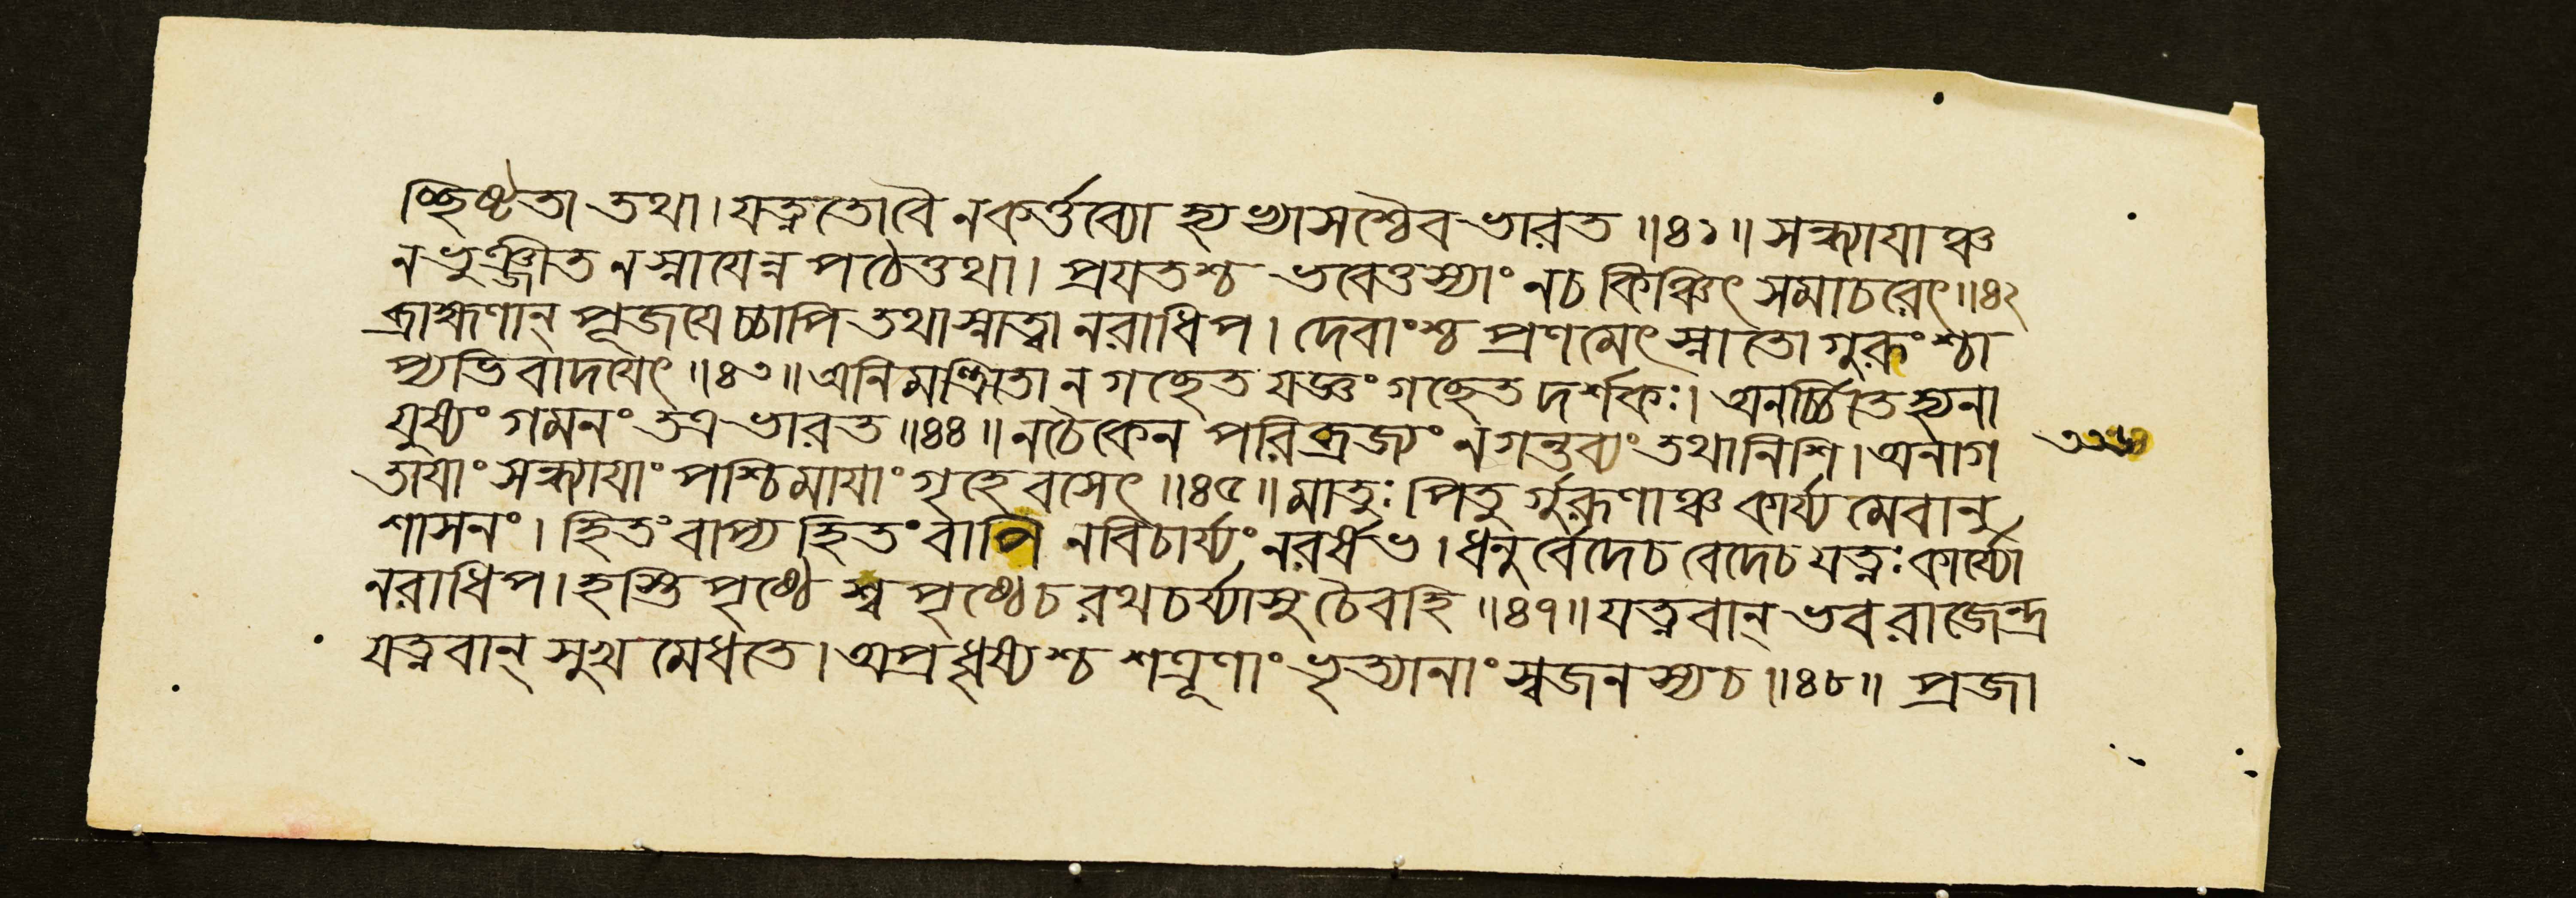 চ্ছিষ্টতা তথা। যত্নতো বৈ ন কর্ত্তব্যো হ্যভ্যাসশ্চৈব ভারত॥ ৪১॥ সন্ধ্যাযাঞ্চ
ন ভুঞ্জীত ন স্নাযেন্ন পঠেত্তথা। প্রযতশ্চ ভবেত্তস্যাং ন চ কিঞ্চিৎ সমাচরেৎ॥ ৪২
ব্রাহ্মণান্ পূজযেচ্চাপি তথা স্নাত্বা নরাধিপ। দেবাংশ্চ প্রণমেৎ স্নাতো গুরূংশ্চা
প্যভিবাদযেৎ॥ ৪৩॥ অনিমন্ত্রিতো ন গচ্ছেত যজ্ঞং গচ্ছেত দর্শকঃ। অনর্চ্চিতে হ্যনা
যুষ্যং গমনং তত্র ভারত॥ ৪৪॥ ন চৈকেন পরিব্রজ্যং ন গন্তব্যং তথা নিশি। অনাগ
তাযাং সন্ধ্যাযাং পশ্চিমাযাং গৃহে বসেৎ॥ ৪৫॥ মাতুঃ পিতুর্গুরূণাঞ্চ কার্য্যমেবানু
শাসনং। হিতং বাপ্যহিতং বাপি ন বিচার্য্যং নরর্ষভ। ধনুর্বেদে চ বেদে চ যত্নঃ কার্য্যো
নরাধিপ। হস্তিপৃষ্ঠেশ্বপৃষ্ঠে চ রথচর্য্যাসু চৈব হি॥ ৪৭॥ যত্নবান্ ভব রাজেন্দ্র
যত্নবান্ সুখমেধতে। অপ্রধৃষ্যশ্চ শত্রূণাং ভৃত্যানাং স্বজনস্য চ॥ ৪৮॥ প্রজা